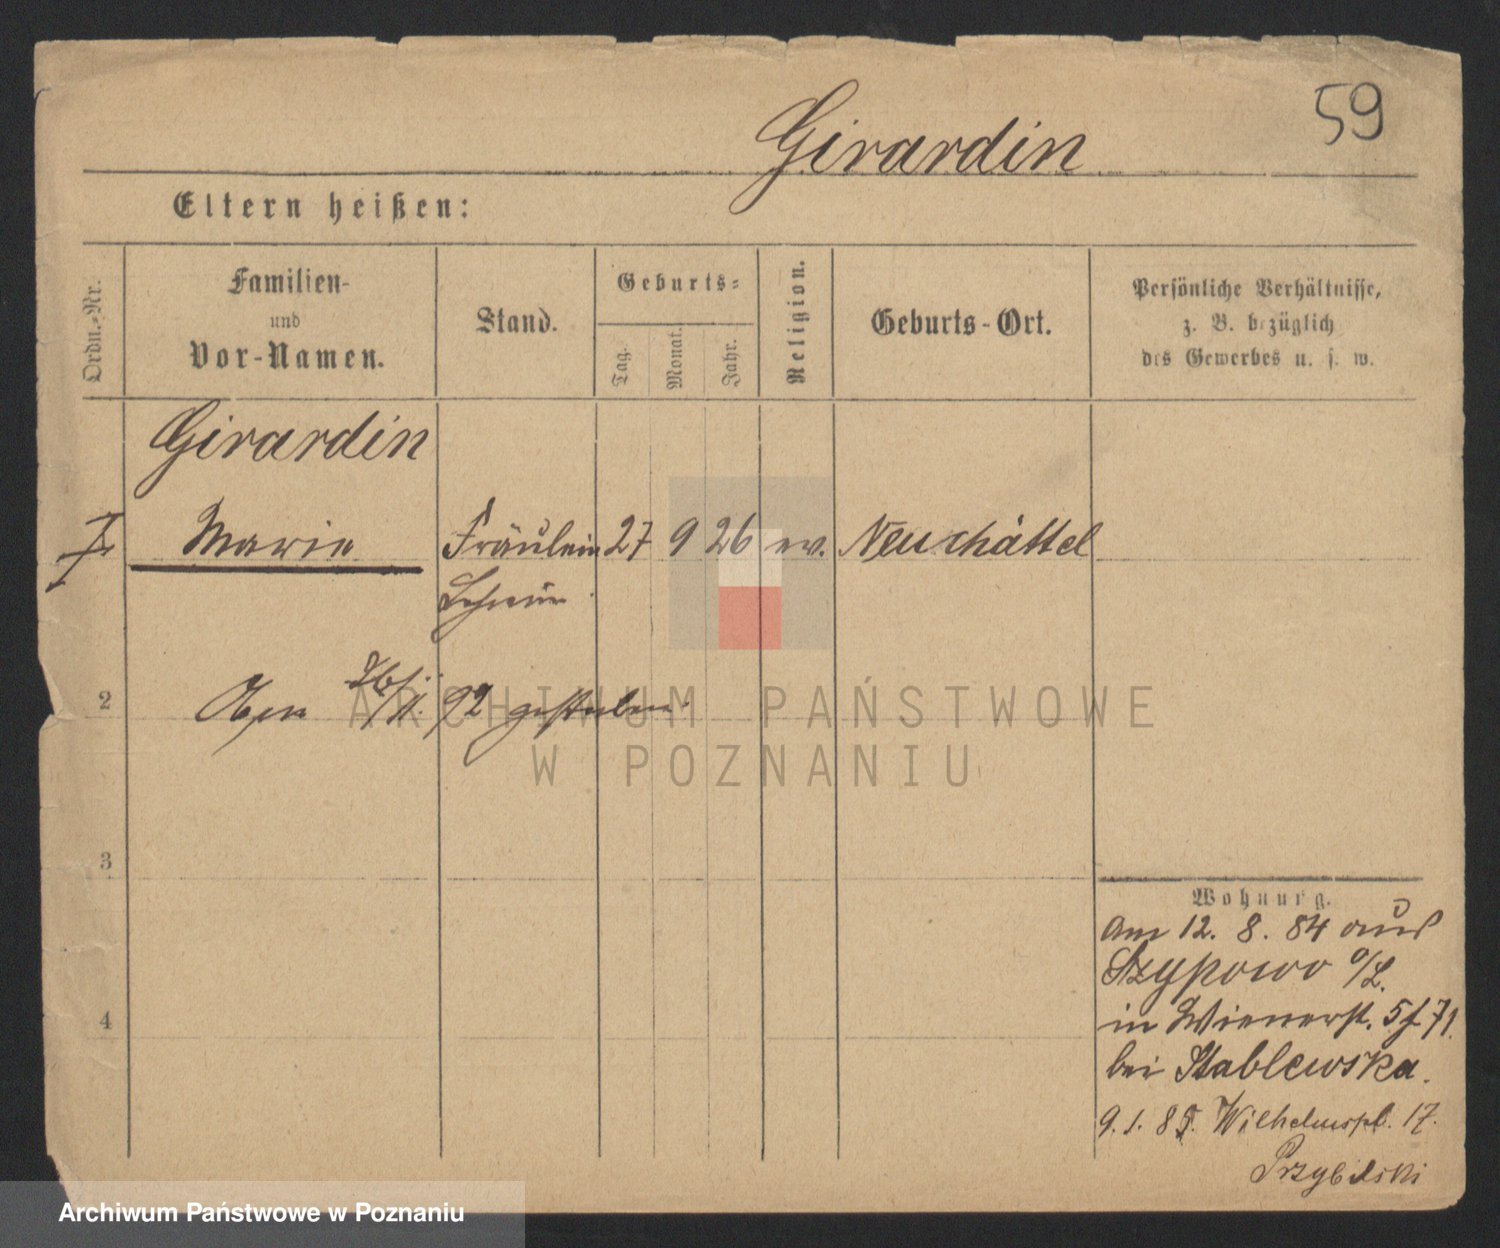 59
Girardin
Eltern heißen:
Ordn.-Nr.
Familien-
und
Vor-Namen.
Stand.
Geburts-
Tag.
Monat.
Jahr.
Religion.
Geburts-Ort.
Persönliche Verhältnisse,
z. B. bezüglich
des Gewerbes u. s. w.
Girardin
Marie Fräulein 27 9 26 ev. Neuchâttel
2
26/11. 92 gestorben
3
4
Wohnung.
am 12. 8. 84 aus
Szypowo
in Wienerst. 5 71.
bei Stablewska.
9. 1. 85. Wilhelmspl. 17.
Przybilski
ARCHIWUM PAŃSTWOWE
W POZNANIU
Archiwum Państwowe w Poznaniu